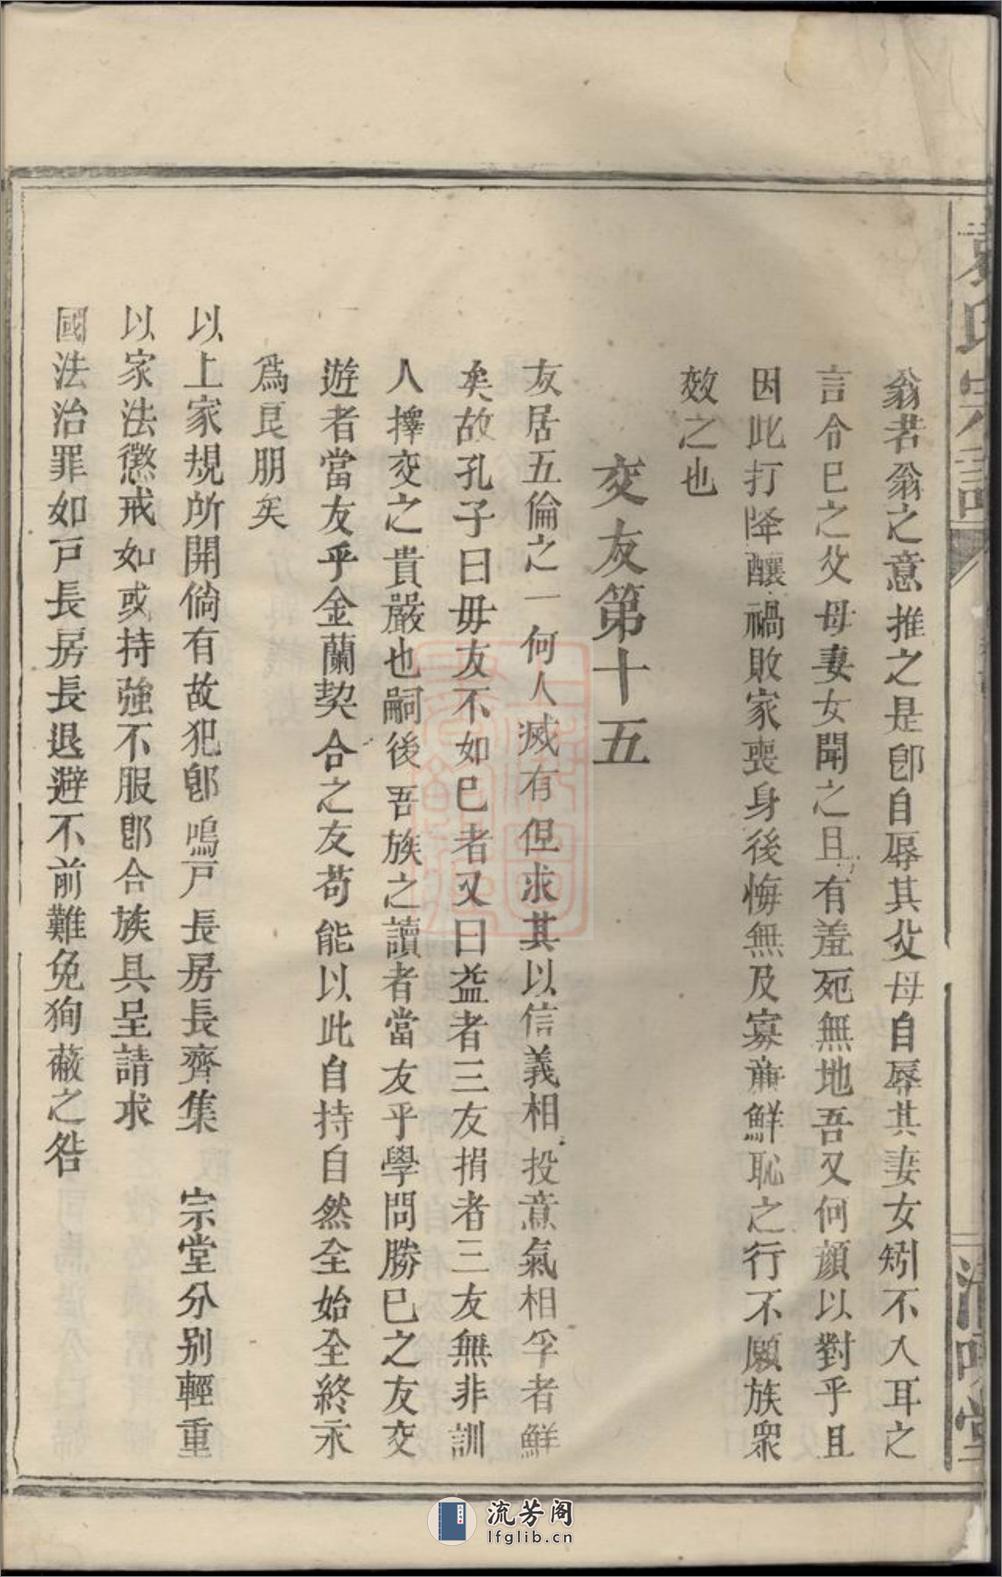 翁若翁之意推之是卽自辱其父母自辱其妻女矧不入耳之
言令巳之父母妻女聞之且有羞死無地吾又何顔以對乎且
因此打降釀禍敗家喪身後悔無及寡亷鮮恥之行不願族衆
效之也
交友第十五
友居五倫之一何人滅有但求其以信義相投意氣相孚者鮮
矣故孔子曰毋友不如巳者又曰益者三友損者三友無非訓
人擇交之貴嚴也嗣後吾族之讀者當友乎學問勝巳之友交
遊者當友乎金蘭契合之友苟能以此自持自然全始全終永
爲良朋矣
以上家規所開倘有故犯卽鳴戸長房長齊集　宗堂分别輕重
以家法懲戒如或持強不服卽合族具呈請求
國法治罪如戸長房長退避不前難免狥蔽之咎
袁氏宗譜
清鳴堂
流芳阁
lfglib.cn